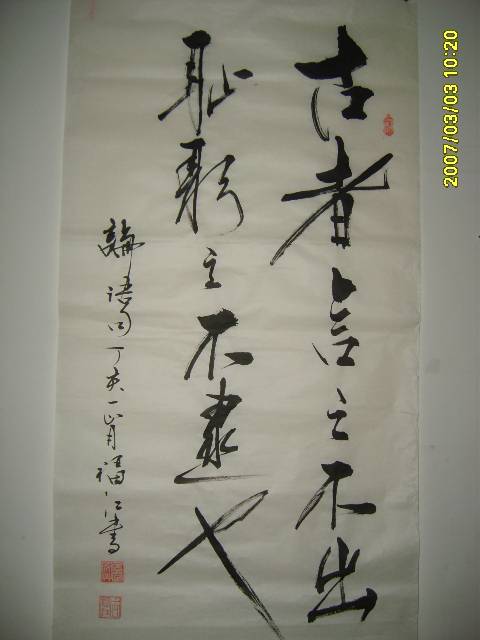 古者言之不出
耻躬之不逮也
論語句丁亥正月福江書
2007/03/03 10:20